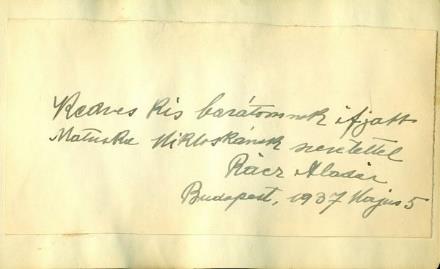 Kedves kis barátomnak ifjabb
Matuska Mikloskának szeretettel
Rácz Aladár
Budapest, 1937 Május 5